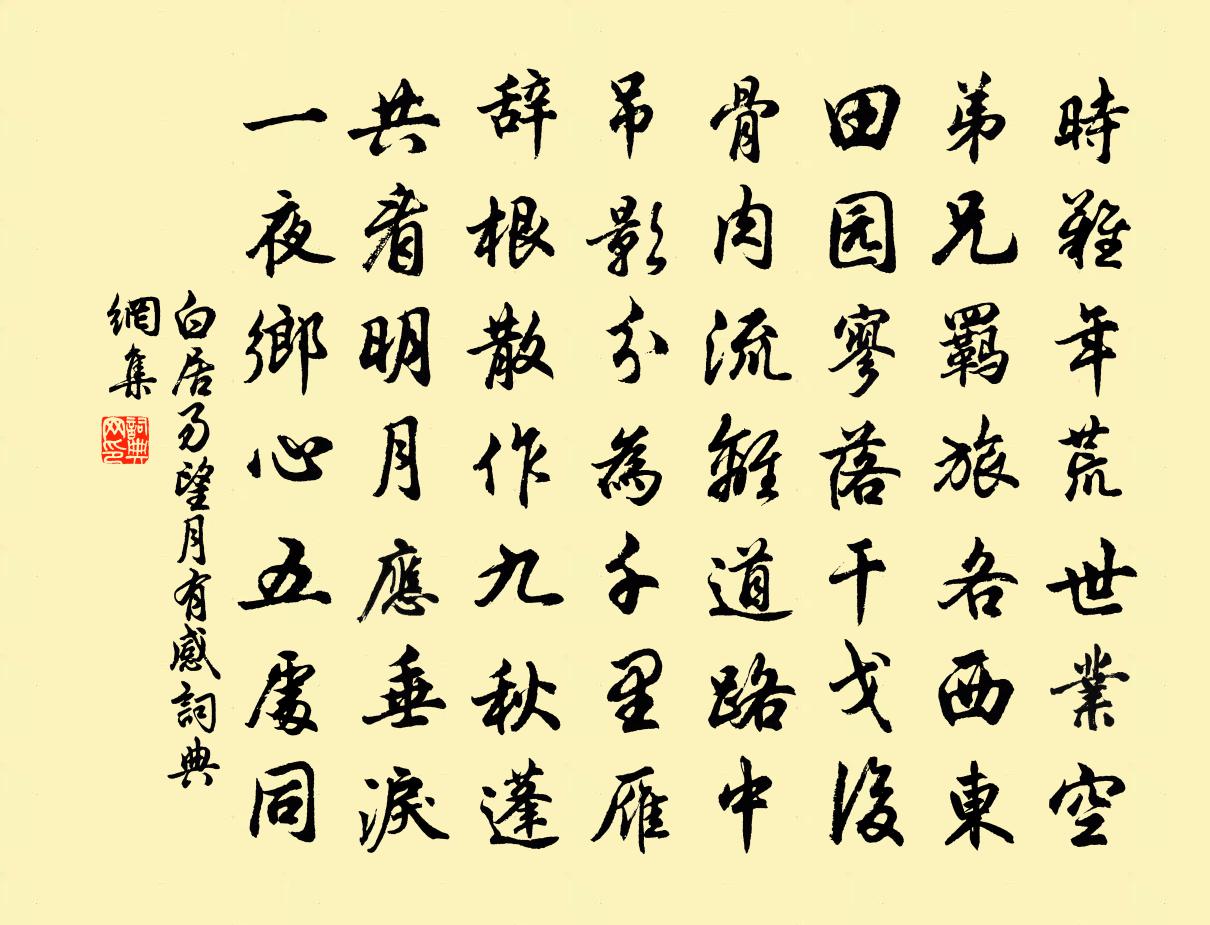 時難年荒世業空
弟兄羈旅各西東
田园寥落干戈後
骨肉流離道路中
吊影分為千里雁
辞根散作九秋蓬
共看明月應垂淚
一夜鄉心五處同
白居易望月有感詞典
網集
詞典
网印